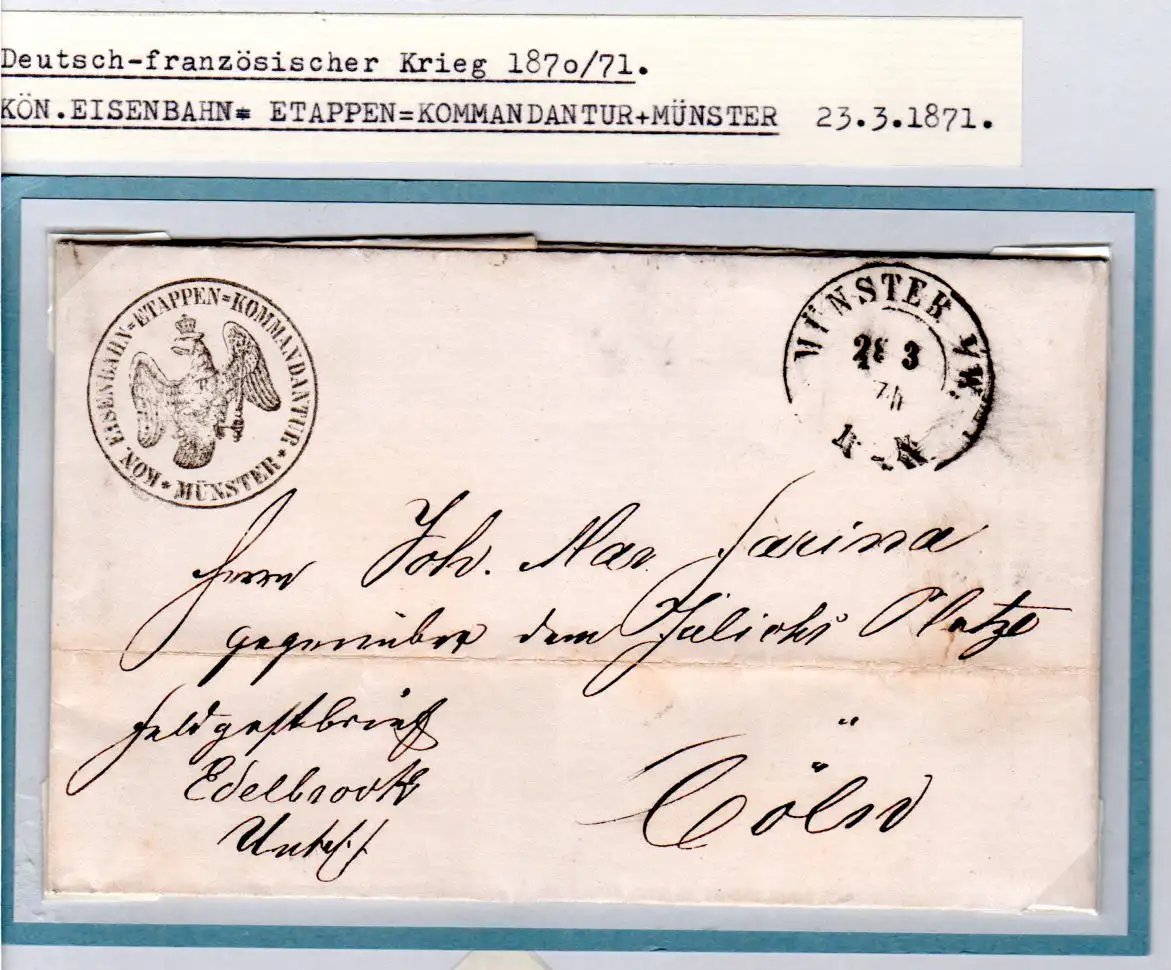 Deutsch-französischer Krieg 1870/71.
KÖN.EISENBAHN* ETAPPEN=KOMMANDANTUR+MÜNSTER 23.3.1871.
KÖN. EISENBAHN=ETAPPEN=KOMMANDANTUR * MÜNSTER *
MÜNSTER
28 3
Herrn Joh. Mar. Farina
gegenüber dem Jülichs Platze
Feldpostbrief
Edelbrock
Cöln